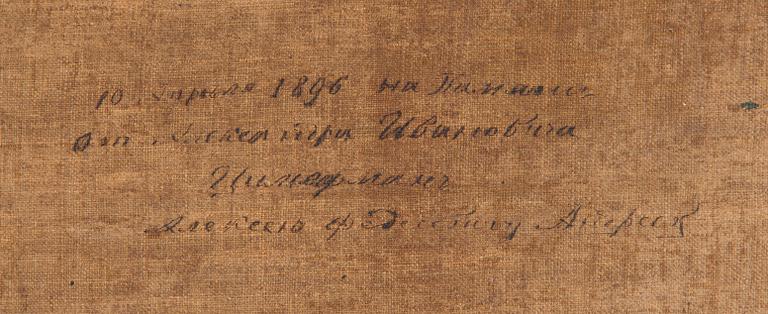 10 Апреля 1896 на Память
от Александра Ивановича
Цимерман
Алексею Федоровичу